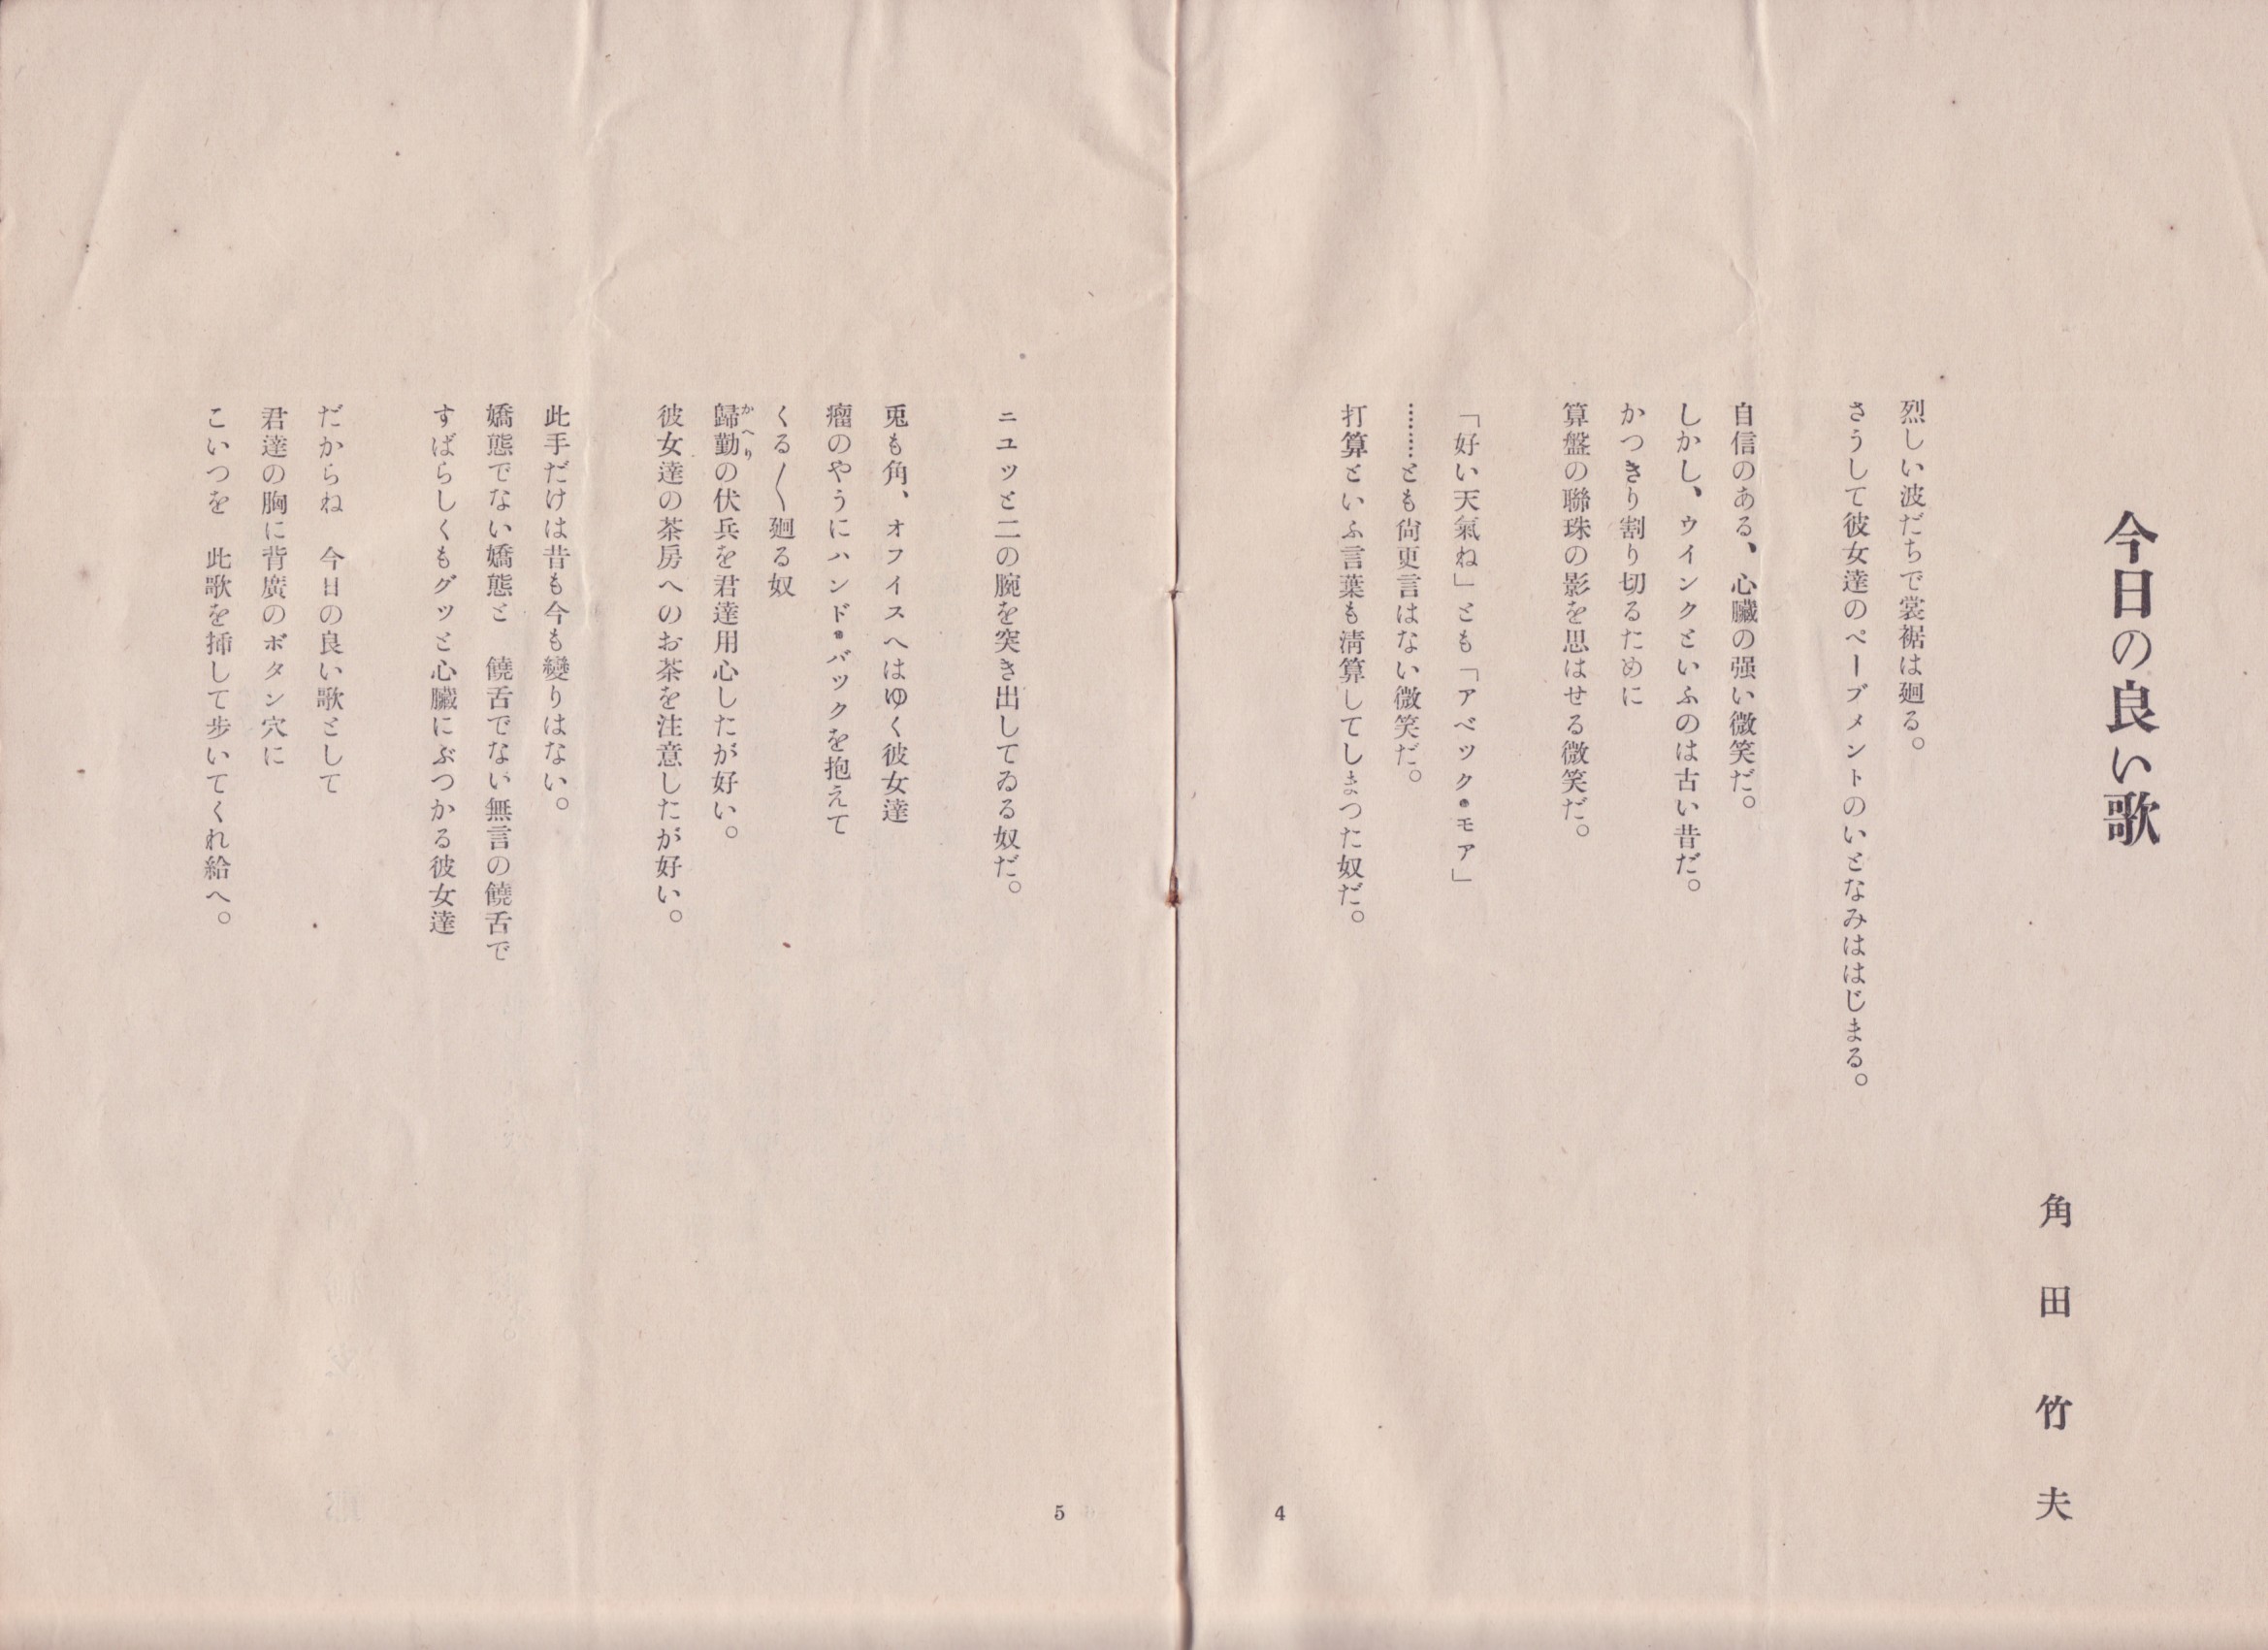 今日の良い歌
角田竹夫
烈しい波だちで裳裾は廻る。
さうして彼女達のペーブメントのいとなみははじまる。
自信のある、心臟の强い微笑だ。
しかし、ウインクといふのは古い昔だ。
かつきり割り切るために
算盤の聯珠の影を思はせる微笑だ。
「好い天氣ね」とも「アベック・モア」
………とも尙更言はない微笑だ。
打算といふ言葉も淸算してしまつた奴だ。
4
ニユッと二の腕を突き出してゐる奴だ。
兎も角、オフイスへはゆく彼女達
瘤のやうにハンド・バックを抱えて
くる〳〵廻る奴
歸勤の伏兵を君達用心したが好い。
かへり
彼女達の茶房へのお茶を注意したが好い。
此手だけは昔も今も變りはない。
嬌態でない嬌態と　饒舌でない無言の饒舌で
すばらしくもグッと心臟にぶつかる彼女達
だからね　今日の良い歌として
君達の胸に背廣のボタン穴に
こいつを　此歌を揷して步いてくれ給へ。
5